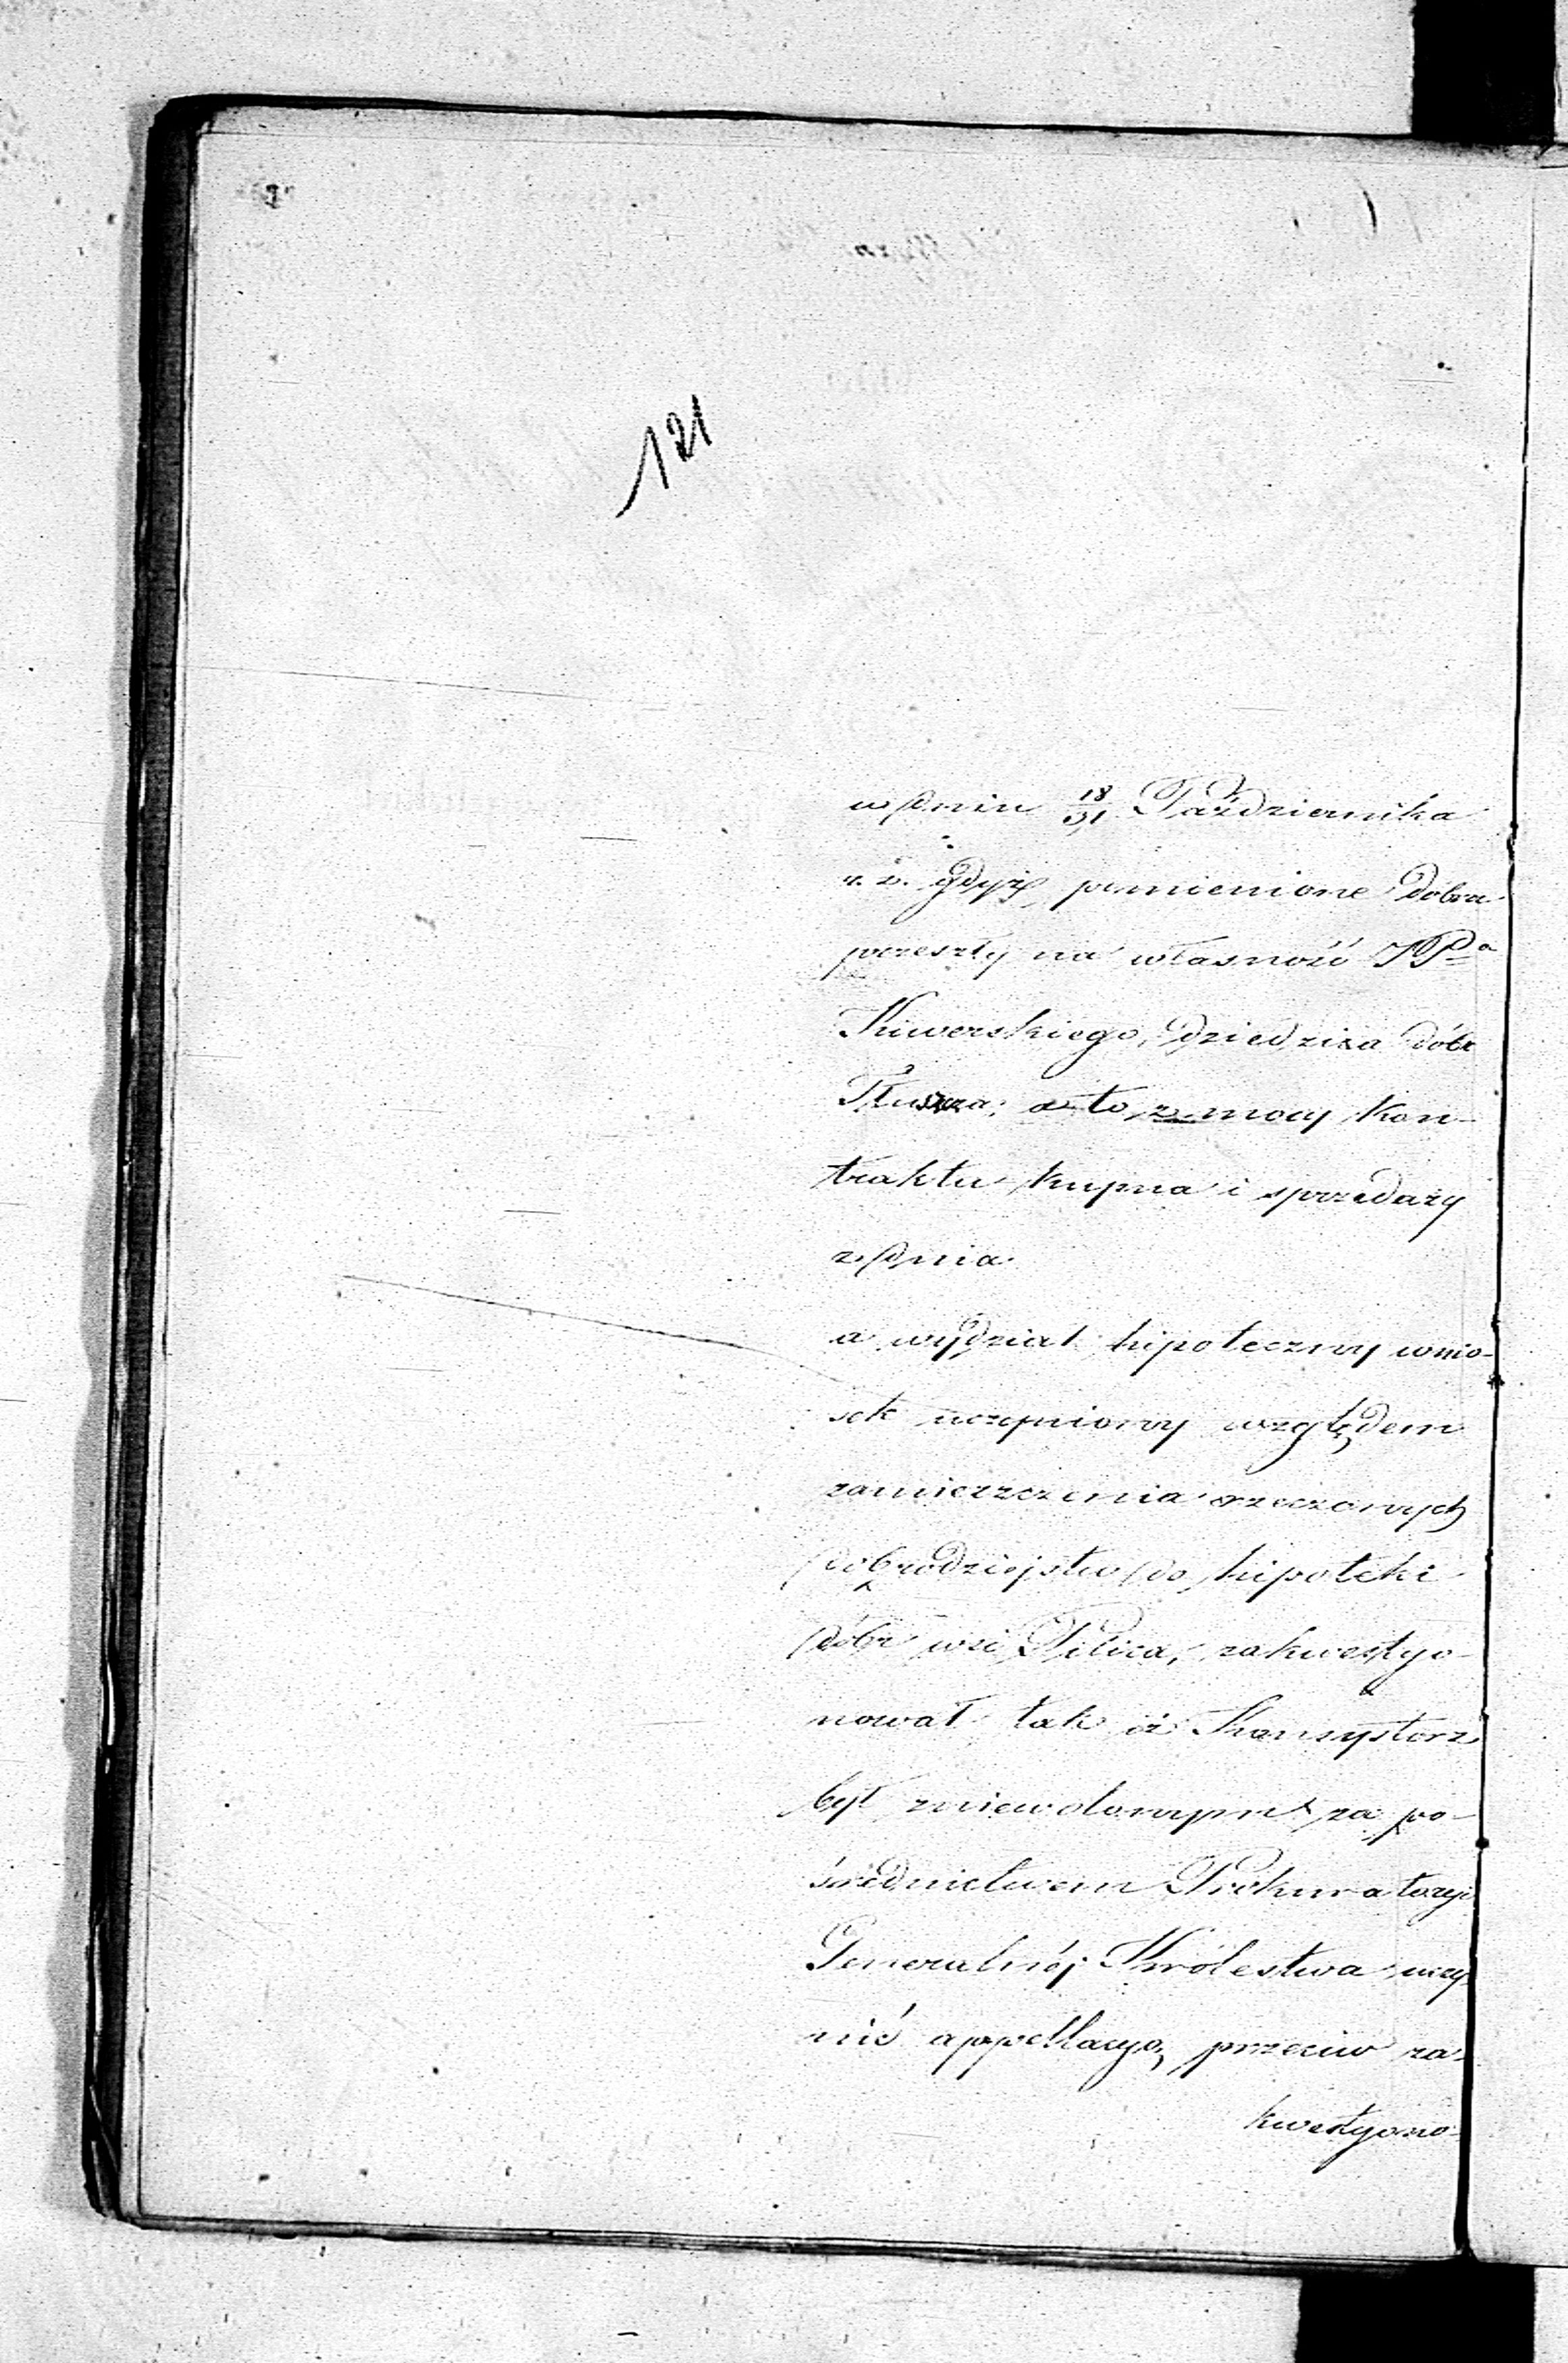 121
w dniu 18/31 Października
r. z. gdyż pomienione dobra
przeszły na własność JPa
Kiwerskiego, dziedzica dóbr
Tłuszcza; a to z mocy kon-
traktu kupna i sprzedaży
z dnia
a wydział hipoteczny wnio-
sek uczyniony względem
zamieszczenia rzeczonych
dobrodziejstw do hipoteki
dóbr wsi Pilica, zakwestyo-
nował tak iż Konsystorz
był zniewolonym za po-
średnictwem Prokuratoryi
Generalnéj Królestwa uczy
nić appellacyą przeciw za-
kwestyono-